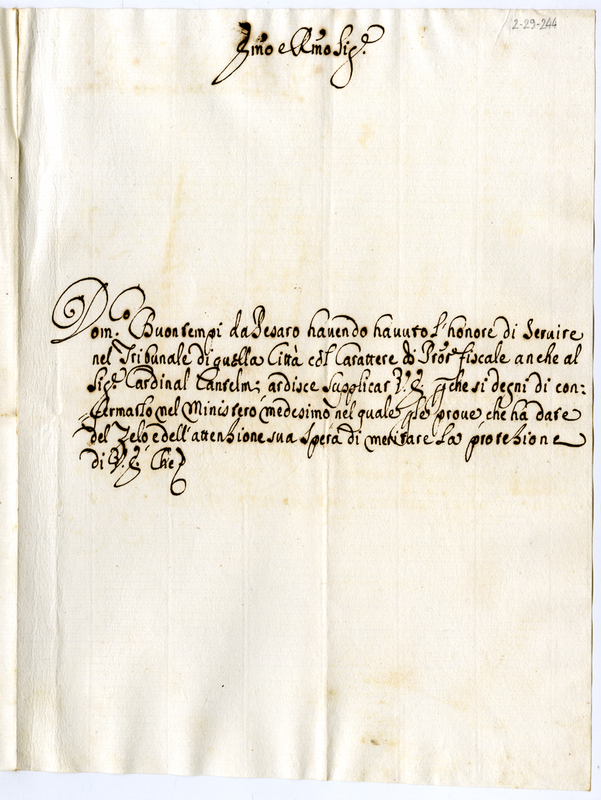 2-29-244
Jmo e Rmo Sig.e
Dom.co Buontempi da Pesaro havendo havuto l'honore di Servire
nel Tribunale di quella Città col Carattere di Pror fiscale anche al
Sig.r Cardinal Lanselmi ardisce Supplicar V. E. che si degni di con:
fermarlo nel Ministero medesimo nel quale le prove che ha date
del Zelo e dell'attenzione sua Spera di meritare la protezione
di V. E. Che